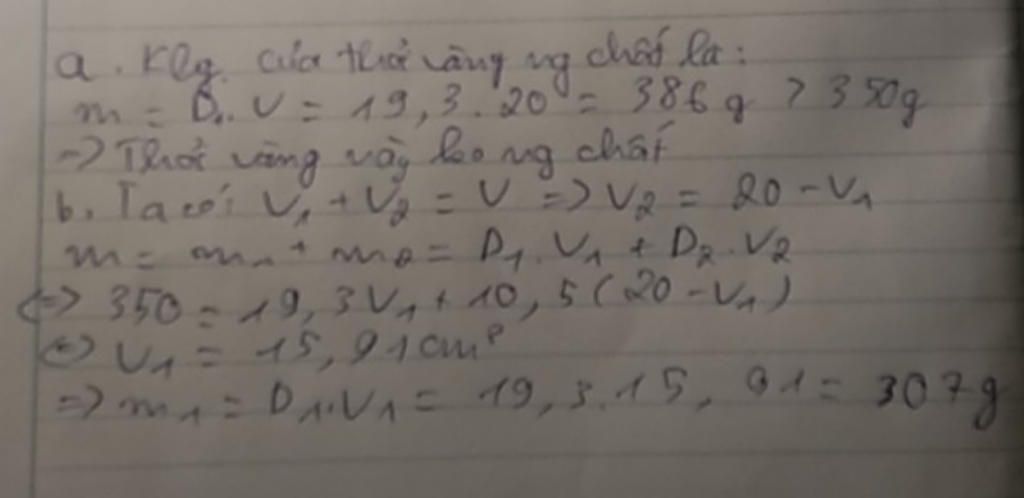 a. Klg. của thỏi vàng ng chất là:
m = D.. V = 19,3.20 = 386g > 350g
=> Thỏi vàng này ko ng chất
b. Ta có: V₁ + V₂ = V => V₂ = 20 - V₁
m = m₁ + m₂ = D₁.V₁ + D₂.V₂
<=> 350 = 19,3V₁ + 10,5(20 - V₁)
<=> V₁ = 15,91cm³
=> m₁ = D₁.V₁ = 19,3.15,91 = 307g